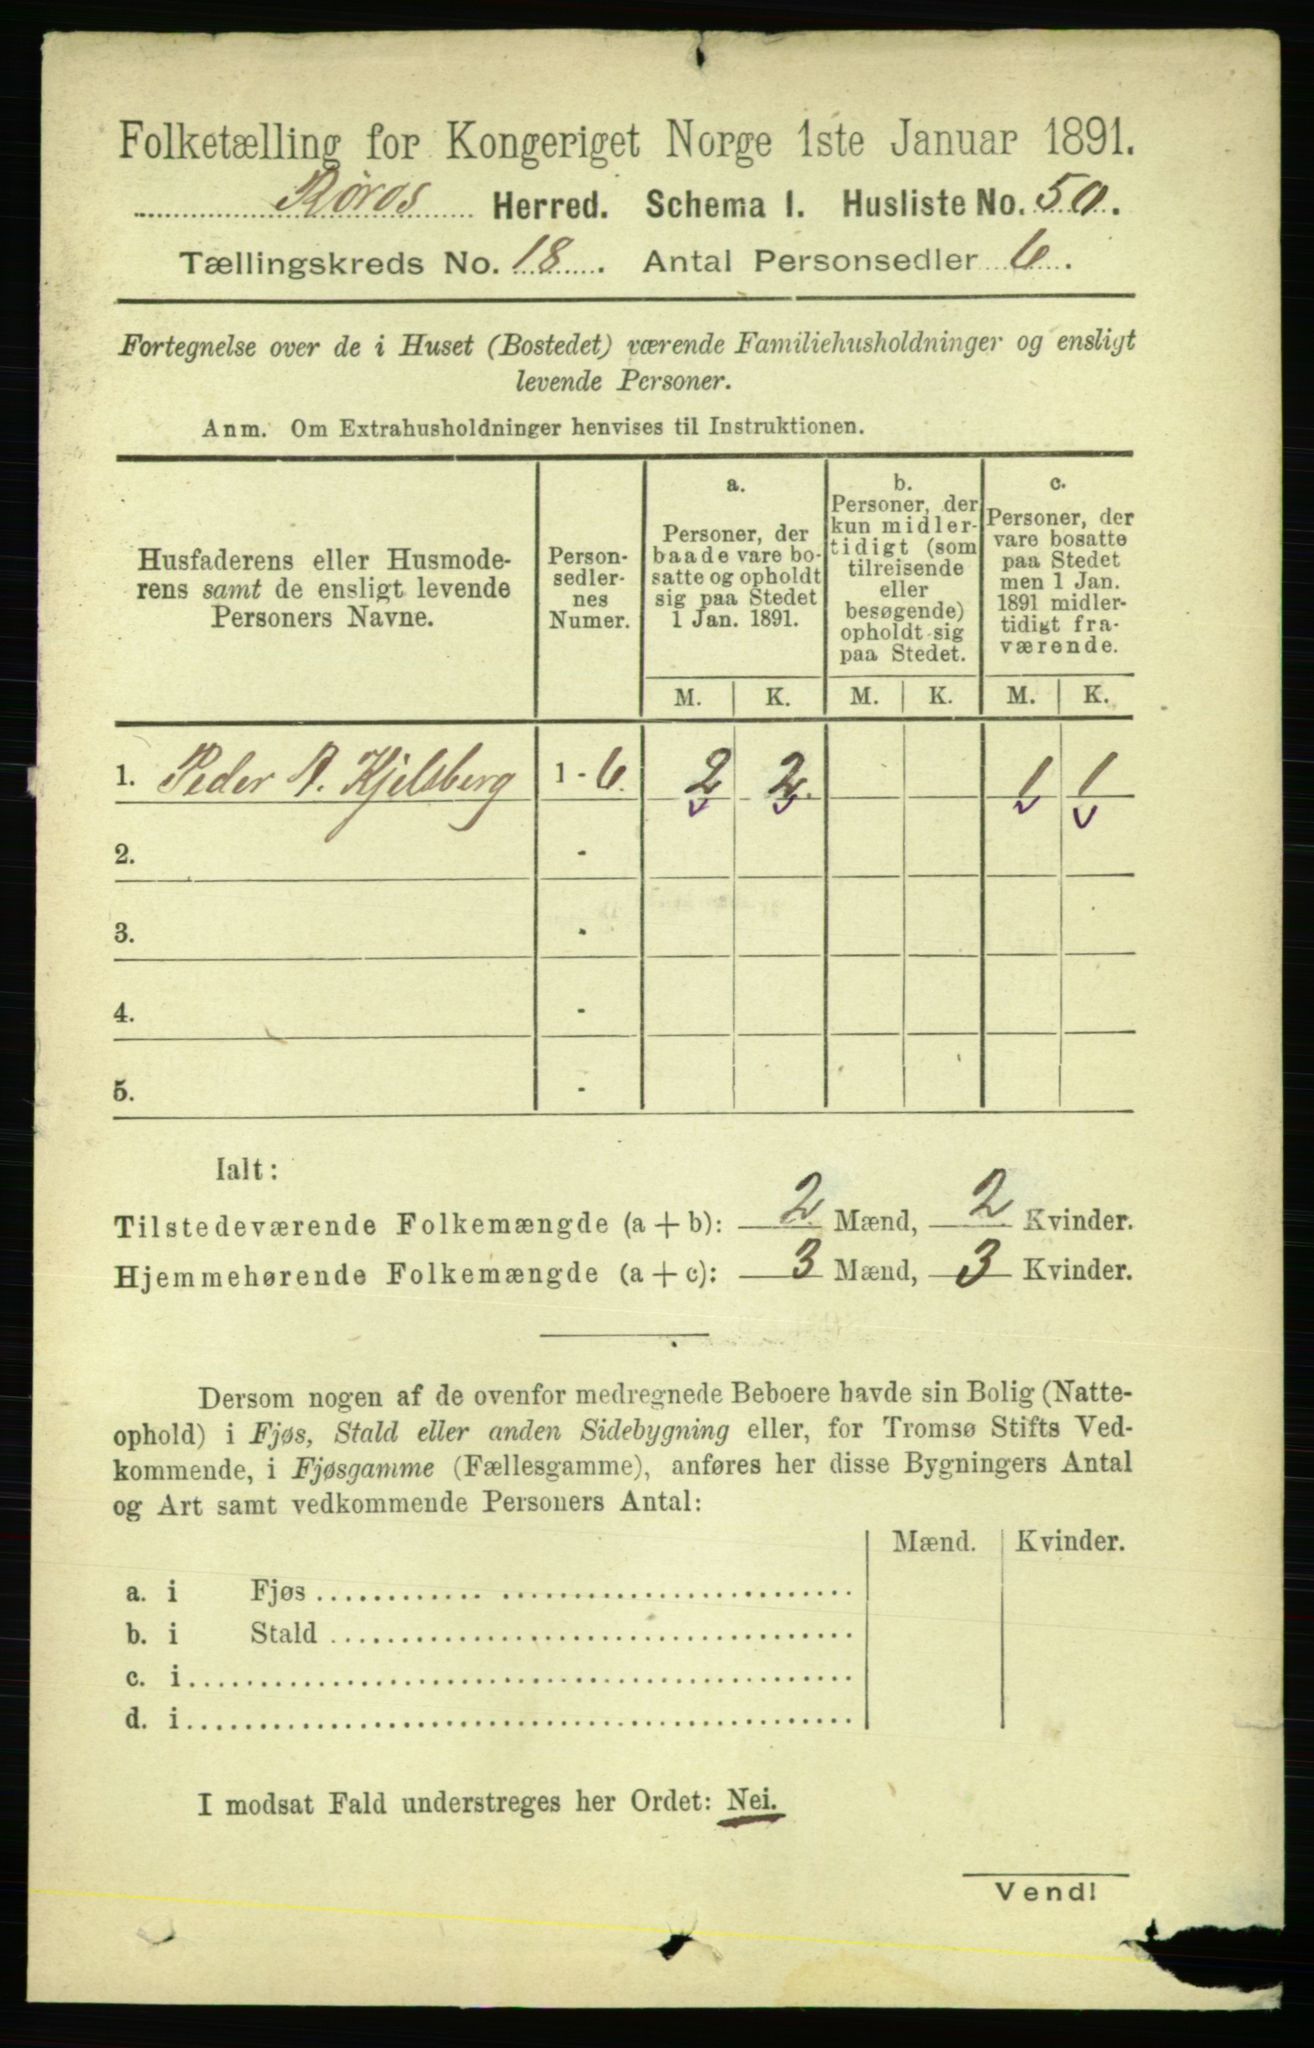 Folketælling for Kongeriget Norge 1ste Januar 1891.
Røros Herred. Schema I. Husliste No. 50.
Tællingskreds No. 18. Antal Personsedler 6.
Fortegnelse over de i Huset (Bostedet) værende Familiehusholdninger og ensligt
levende Personer.
Anm. Om Extrahusholdninger henvises til Instruktionen.
Husfaderens eller Husmode-
rens samt de ensligt levende
Personers Navne.
Person-
sedler-
nes
Numer.
a.
Personer, der
baade vare bo-
satte og opholdt
sig paa Stedet
1 Jan. 1891.
b.
Personer, der
kun midler-
tidigt (som
tilreisende
eller
besøgende)
opholdt sig
paa Stedet.
c.
Personer, der
vare bosatte
paa Stedet
men 1 Jan.
1891 midler-
tidigt fra-
værende.
M. K. M. K. M. K.
1. Peder A. Kjelsberg 1 - 6. 2 2 1 1
2. -
3. -
4. -
5. -
Ialt:
Tilstedeværende Folkemængde (a + b): 2 Mænd, 2 Kvinder.
Hjemmehørende Folkemængde (a + c): 3 Mænd, 3 Kvinder.
Dersom nogen af de ovenfor medregnede Beboere havde sin Bolig (Natte-
ophold) i Fjøs, Stald eller anden Sidebygning eller, for Tromsø Stifts Ved-
kommende, i Fjøsgamme (Fællesgamme), anføres her disse Bygningers Antal
og Art samt vedkommende Personers Antal:
Mænd. Kvinder.
a. i Fjøs
b. i Stald
c. i
d. i
I modsat Fald understreges her Ordet: Nei.
Vend!